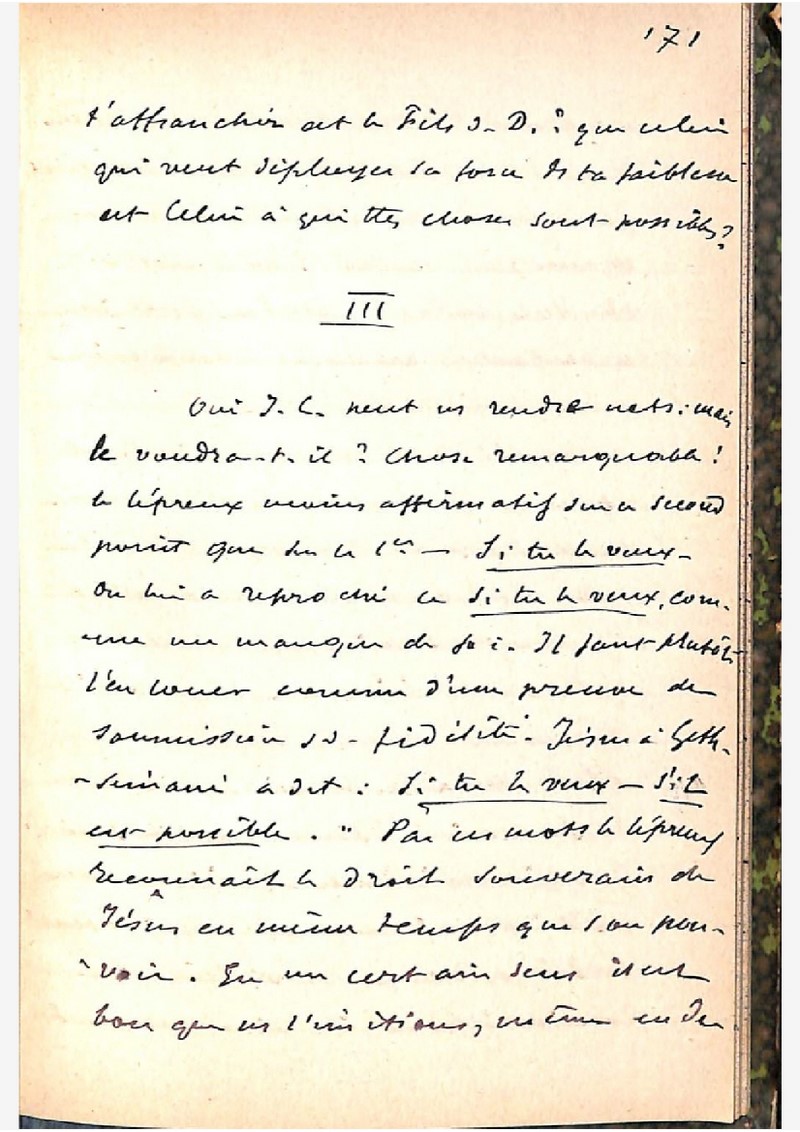 171
t'affranchir est le Fils d. D. ? que celui
qui veut déployer sa force ds ta faiblesse
est Celui à qui ttes choses sont possibles ?
III
Oui J. C. peut ns rendre nets : mais
le voudra-t-il ? Chose remarquable !
le lépreux moins affirmatif sur ce second
point que sur le 1er — Si tu le veux –
On lui a reproché ce Si tu le veux, com-
-me un manque de foi. Il faut plutôt
l'en louer comme d'une preuve de
soumission fidélité. Jésus à Geth-
-sémané a dit : Si tu le veux — S'il
est possible. " Par ces mots le lépreux
reconnaît le droit souverain de
Jésus en même temps que son pou-
-voir. En un certain sens il est
bon que ns l'imitions, même en de